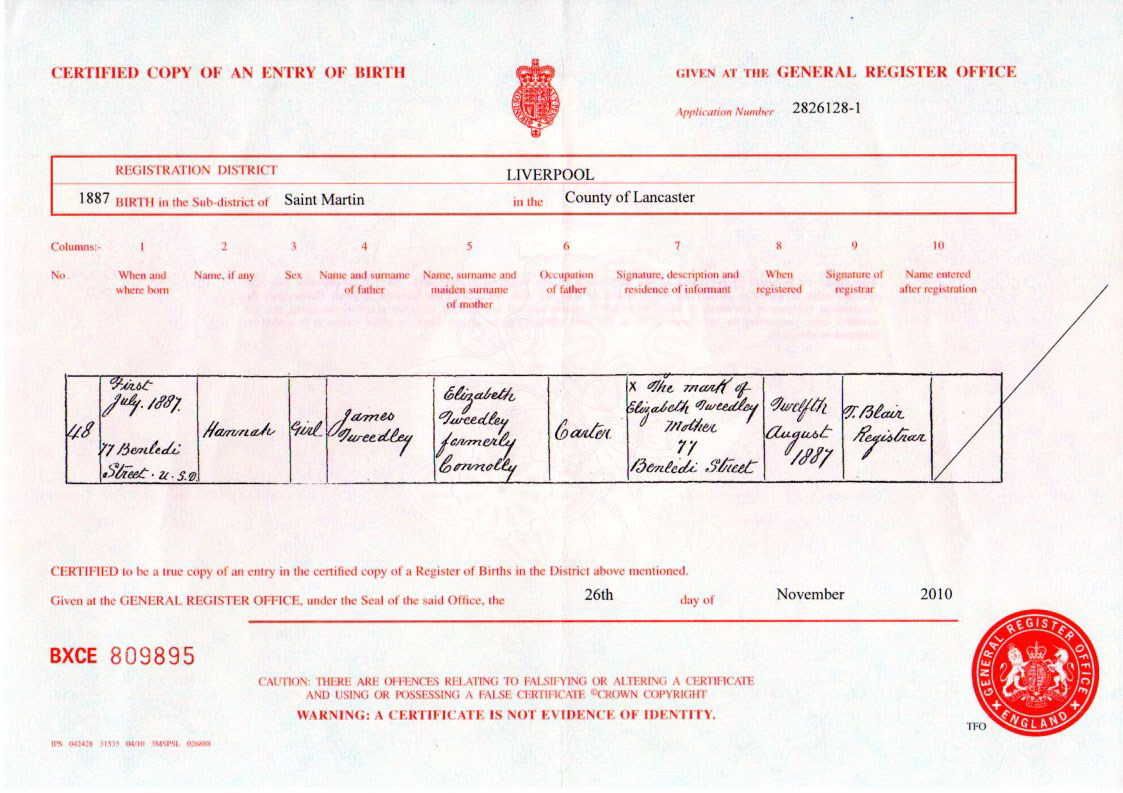 CERTIFIED COPY OF AN ENTRY OF BIRTH
GIVEN AT THE GENERAL REGISTER OFFICE
Application Number 2826128-1
REGISTRATION DISTRICT LIVERPOOL
1887 BIRTH in the Sub-district of Saint Martin in the County of Lancaster
Columns:- 1 2 3 4 5 6 7 8 9 10
No. When and where born Name, if any Sex Name and surname of father Name, surname and maiden surname of mother Occupation of father Signature, description and residence of informant When registered Signature of registrar Name entered after registration
48
First
July. 1887.
77 Benledi
Street . U . S.D.
Hannah
Girl
James
Tweedley
Elizabeth
Tweedley
formerly
Connolly
Carter
X The mark of
Elizabeth Tweedley
Mother
77
Benledi Street
Twelfth
August
1887
T. Blair
Registrar
CERTIFIED to be a true copy of an entry in the certified copy of a Register of Births in the District above mentioned.
Given at the GENERAL REGISTER OFFICE, under the Seal of the said Office, the 26th day of November 2010
BXCE 809895
CAUTION: THERE ARE OFFENCES RELATING TO FALSIFYING OR ALTERING A CERTIFICATE
AND USING OR POSSESSING A FALSE CERTIFICATE ©CROWN COPYRIGHT
WARNING: A CERTIFICATE IS NOT EVIDENCE OF IDENTITY.
GENERAL REGISTER OFFICE
ENGLAND
TFO
IPS 042428 31535 04/10 3MSPSL 026688